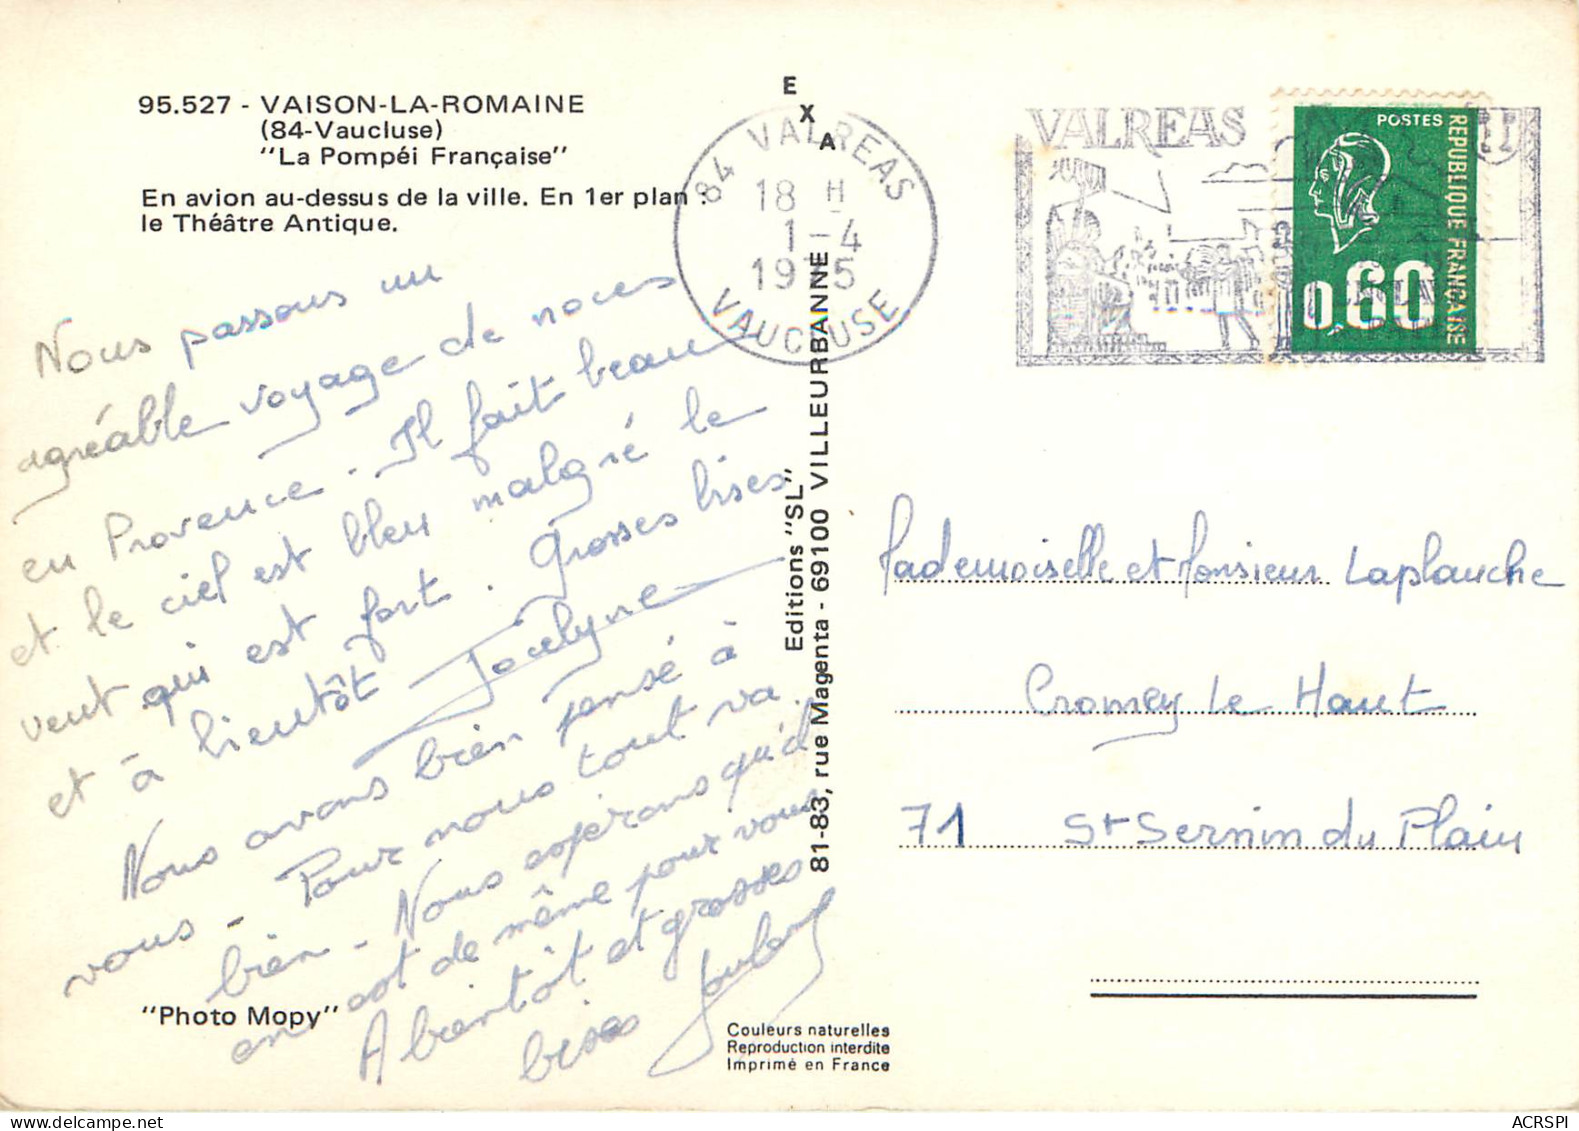 95.527 - VAISON-LA-ROMAINE
(84-Vaucluse)
"La Pompéi Française"
En avion au-dessus de la ville. En 1er plan :
le Théâtre Antique.
Nous passons un
agréable voyage de noces
en Provence. Il fait beau
et le ciel est bleu malgré le
vent qui est fort. Grosses bises
et à bientôt Jocelyne
Nous avons bien pensé à
vous - Pour nous tout va
bien - Nous espérons qu'il
en est de même pour vous
A bientôt et grosses
bises
"Photo Mopy"
EXA
Editions "SL"
81-83, rue Magenta - 69100 VILLEURBANNE
Couleurs naturelles
Reproduction interdite
Imprimé en France
84 VALREAS
18 H
1-4
1975
VAUCLUSE
VALREAS
POSTES
REPUBLIQUE FRANÇAISE
0,60
Mademoiselle et Monsieur Laplanche
Cromey Le Haut
71 St Sernin du Plain
ACRSPI